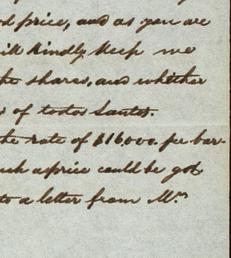 d price, and as you are
will kindly keep me
the shares, and whether
s of todos Santos.
the rate of $16,000. per bar-
uch a price could be got
to a letter from Mr.